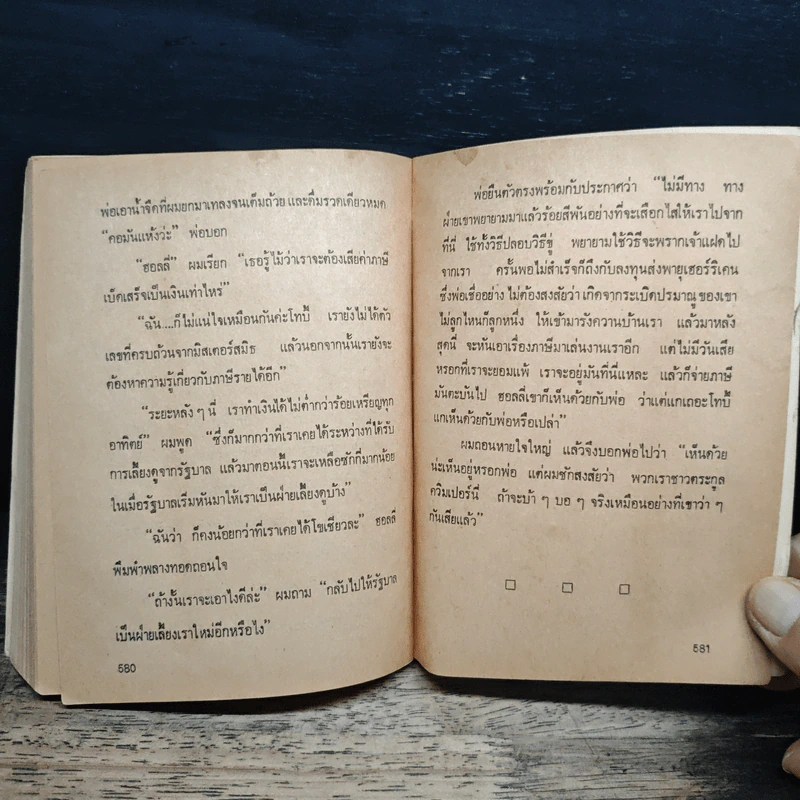 พ่อเอาน้ำจืดที่ผมยกมาเทลงจนเต็มถ้วย และดื่มรวดเดียวหมด
“คอมันแห้งว่ะ” พ่อบอก
“ฮอลลี่” ผมเรียก “เธอรู้ไม้ว่าเราจะต้องเสียค่าภาษี
เบ็ดเสร็จเป็นเงินเท่าไหร่”
“ฉัน....ก็ไม่แน่ใจเหมือนกันค่ะโทบี้ เรายังไม่ได้ตัว
เลขที่ครบถ้วนจากมิสเตอร์สมิธ แล้วนอกจากนั้นเรายังจะ
ต้องหาความรู้เกี่ยวกับภาษีรายได้อีก”
“ระยะหลัง ๆ นี่ เราทำเงินได้ไม่ต่ำกว่าร้อยเหรียญทุก
อาทิตย์” ผมพูด “ซึ่งก็มากกว่าที่เราเคยได้ระหว่างที่ได้รับ
การเลี้ยงดูจากรัฐบาล แล้วมาตอนนี้เราจะเหลือซักกี่มากน้อย
ในเมื่อรัฐบาลเริ่มหันมาให้เราเป็นฝ่ายเลี้ยงดูบ้าง”
“ฉันว่า ก็คงน้อยกว่าที่เราเคยได้โขเชียวละ” ฮอลลี่
พึมพำพลางทอดถอนใจ
“ถ้างั้นเราจะเอาไงดีล่ะ” ผมถาม “กลับไปให้รัฐบาล
เป็นฝ่ายเลี้ยงเราใหม่อีกหรือไง”
580
พ่อยืนตัวตรงพร้อมกับประกาศว่า “ไม่มีทาง ทาง
ฝ่ายเขาพยายามมาแล้วร้อยสีพันอย่างที่จะเสือกไสให้เราไปจาก
ที่นี่ ใช้ทั้งวิธีปลอบวิธีขู่ พยายามใช้วิธีจะพรากเจ้าแฝดไป
จากเรา ครั้นพอไม่สำเร็จก็ถึงกับลงทุนส่งพายุเฮอร์ริเคน
ซึ่งพ่อเชื่ออย่าง ไม่ต้องสงสัยว่า เกิดจากระเบิดปรมาณู ของเขา
ไม่ลูกไหนก็ลูกหนึ่ง ให้เข้ามารังควานบ้านเรา แล้วมาหลัง
สุดนี่ จะหันเอาเรื่องภาษีมาเล่นงานเราอีก แต่ไม่มีวันเสีย
หรอกที่เราจะยอมแพ้ เราจะอยู่มันที่นี่แหละ แล้วก็จ่ายภาษี
มันตะบันไป ฮอลลี่เขาก็เห็นด้วยกับพ่อ ว่าแต่แกเถอะโทบี้
แกเห็นด้วยกับพ่อหรือเปล่า”
ผมถอนหายใจใหญ่ แล้วจึงบอกพ่อไปว่า “เห็นด้วย
น่ะเห็นอยู่หรอกพ่อ แต่ผมชักสงสัยว่า พวกเราชาวตระกูล
ควิมเปอร์นี่ ถ้าจะบ้า ๆ บอ ๆ จริงเหมือนอย่างที่เขาว่า ๆ
กันเสียแล้ว”
581